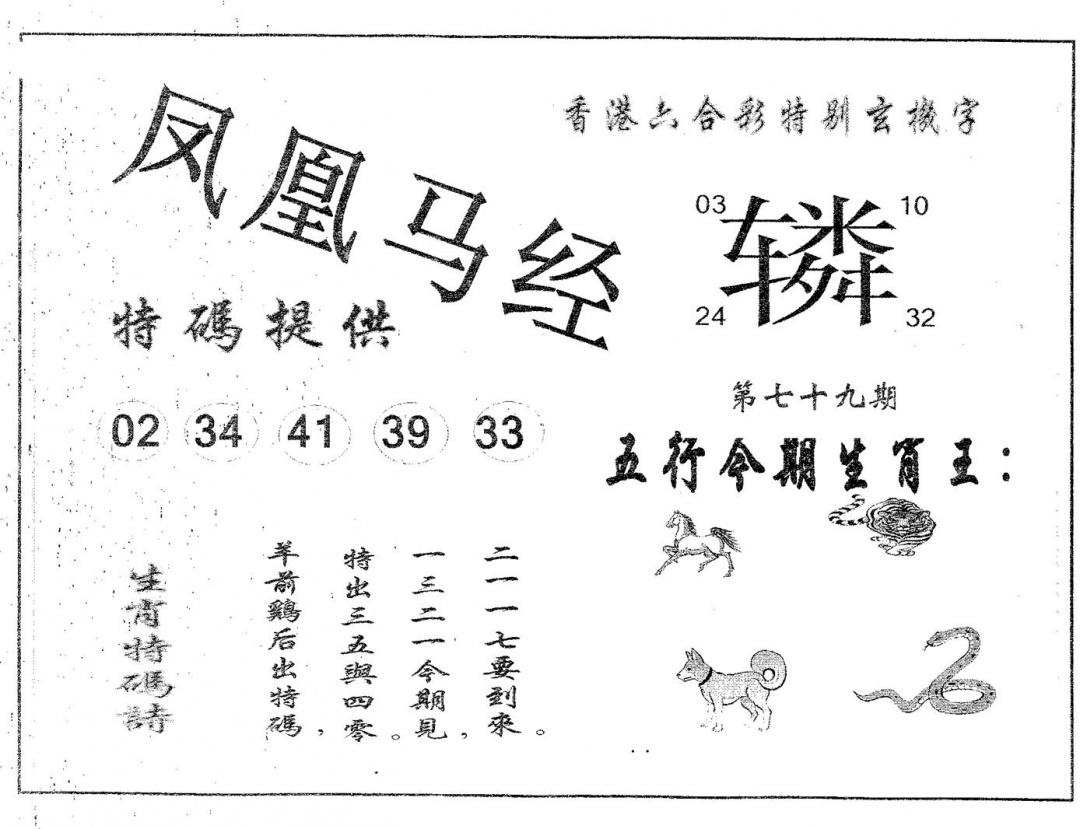 凤凰马经
香港六合彩特别玄機字
03 10
辚
24 32
特碼提供
02 34 41 39 33
第七十九期
五行今期生肖王：
生肖特碼詩
羊前鷄后出特碼，
特出三五與四零。
一三二一今期見，
二一一七要到來。